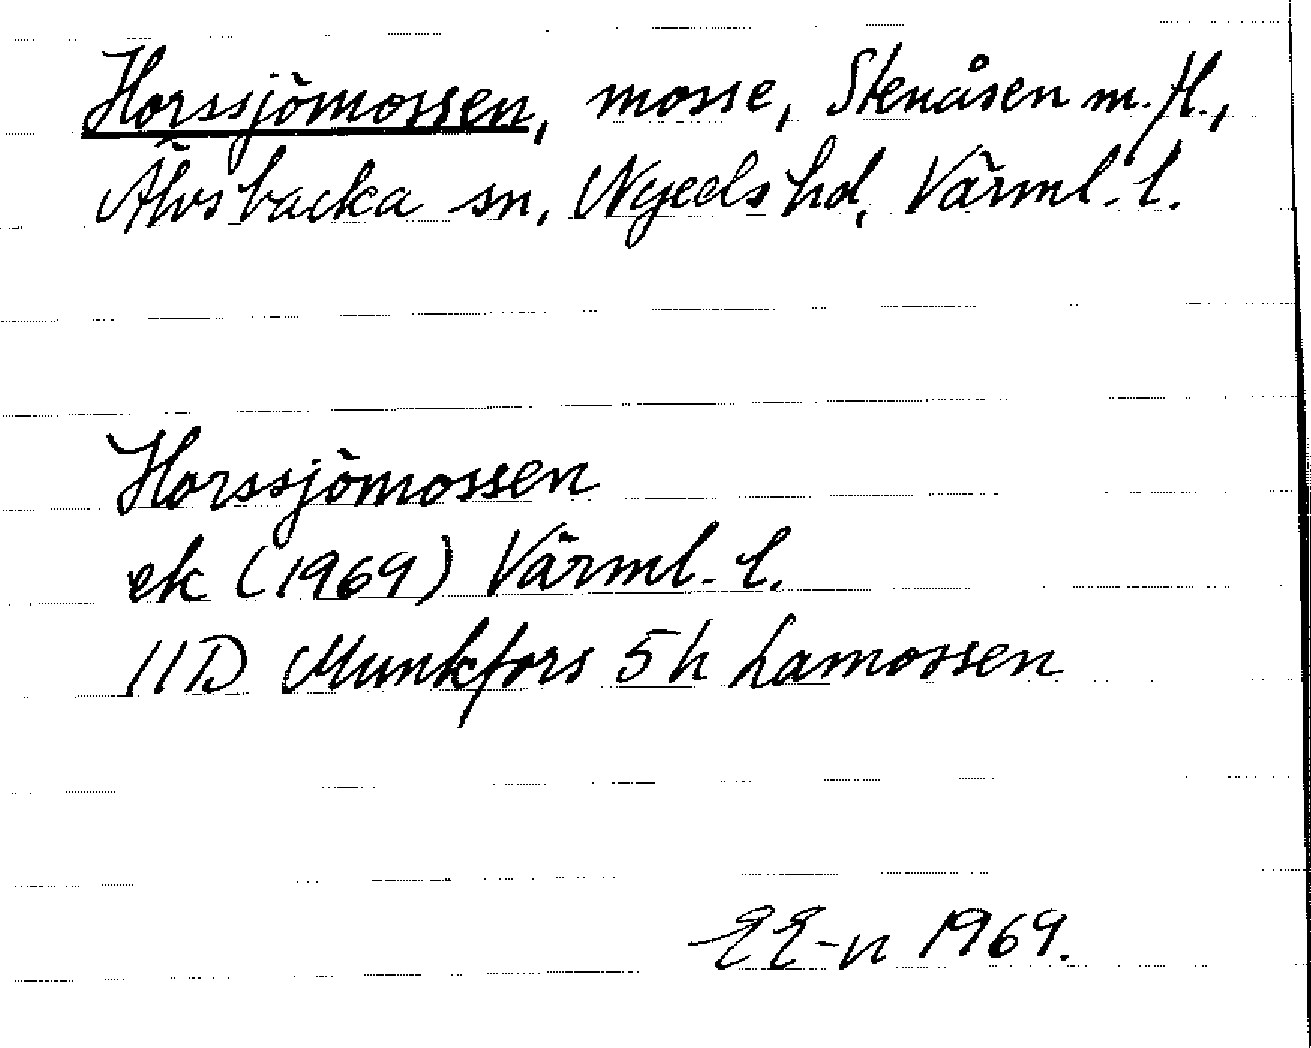 Horssjömossen, mosse, Stenåsen m.fl.,
Älvsbacka sn, Nyeds hd, Värml. l.
Horssjömossen
ek (1969) Värml. l.
11D Munkfors 5h Lamossen
EE-n 1969.